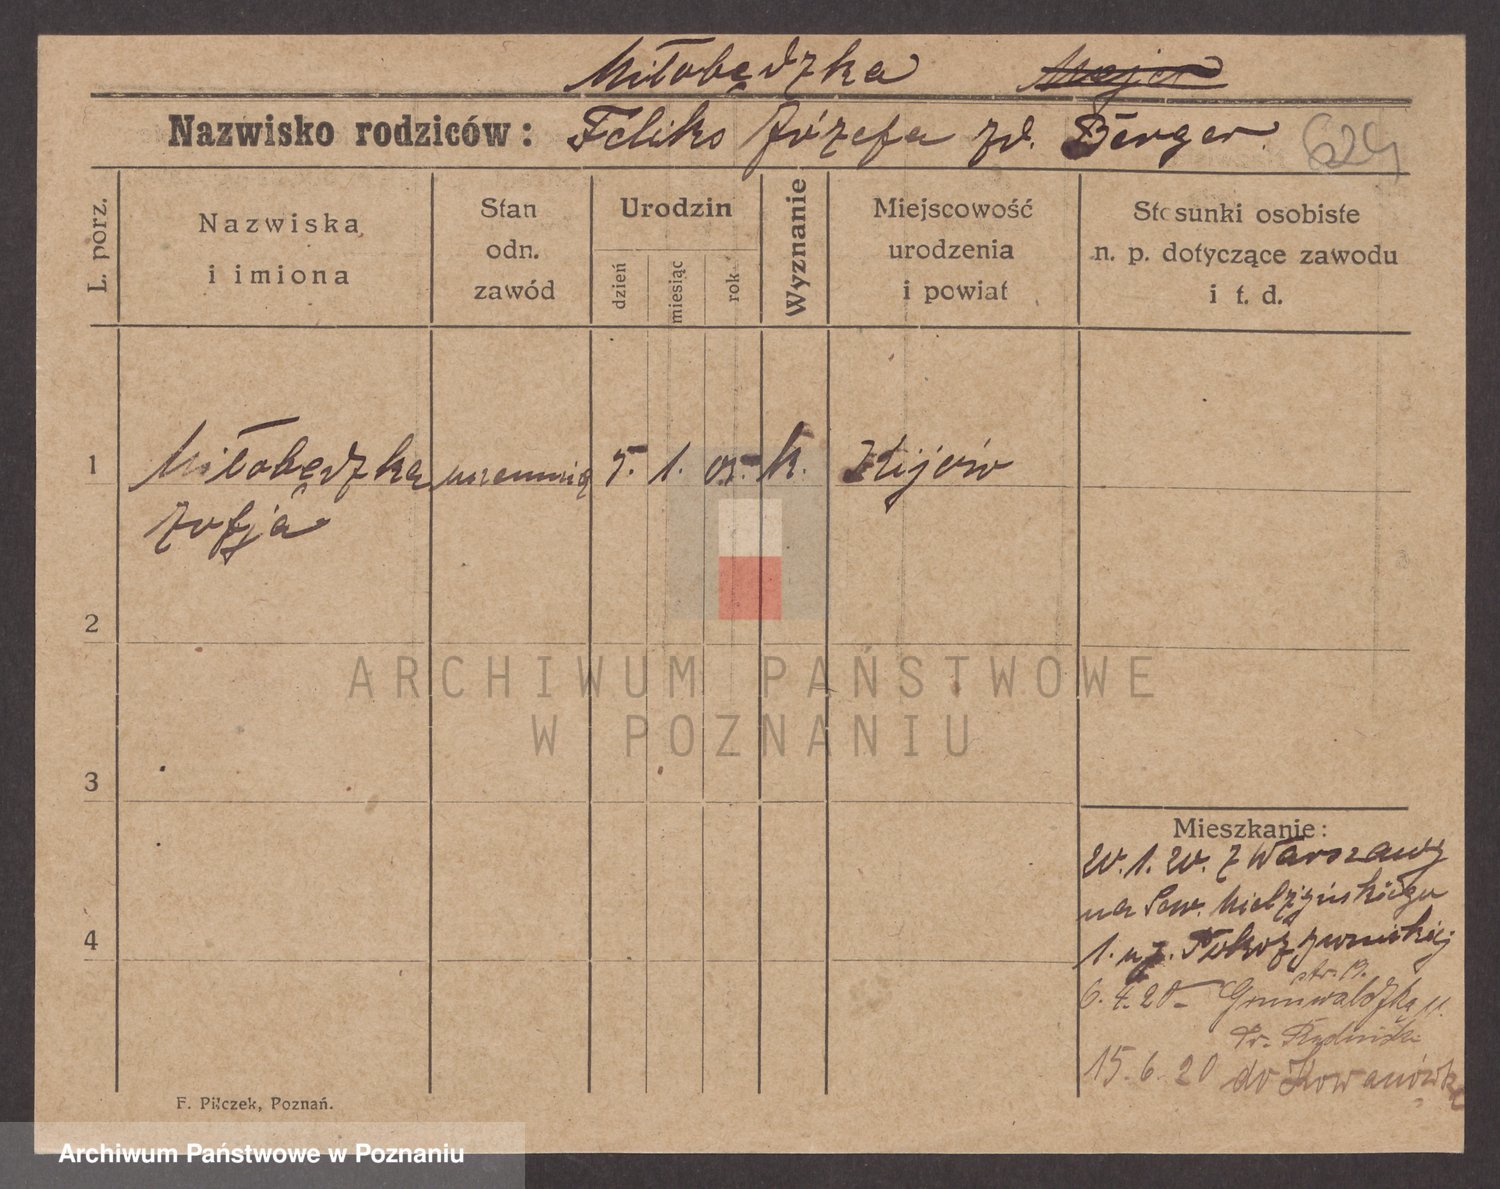 Miłobędzka
Nazwisko rodziców: Feliks Józefa zd. Berger 624
L. porz.
Nazwiska
i imiona
Stan
odn.
zawód
Urodzin
dzień
miesiąc
rok
Wyznanie
Miejscowość
urodzenia
i powiat
Stosunki osobiste
n. p. dotyczące zawodu
i t. d.
1 Miłobędzka uczennica 5. 1. 05. k. Kijów
Zofja
2
3
4
ARCHIWUM PAŃSTWOWE
W POZNANIU
Mieszkanie:
20.1.20. z Warszawy
na Sew. Mielżyńskiego
1. u
6.4.20 - Grunwaldzka u.
15.6.20 do Kowanówka
F. Pilczek, Poznań.
Archiwum Państwowe w Poznaniu